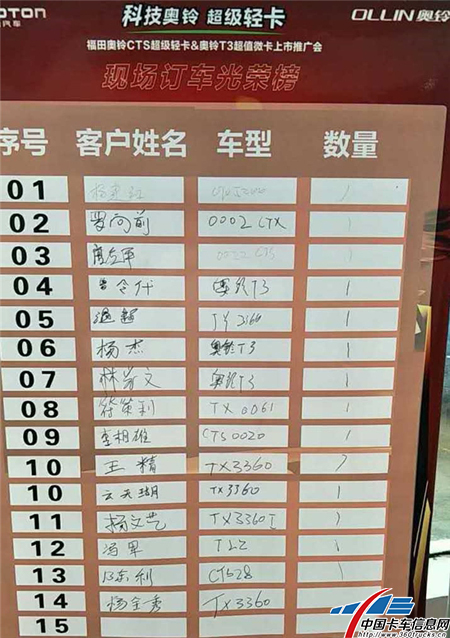 OTON
汽车
科技奥铃 超级轻卡
OLLIN 奥铃
福田奥铃CTS超级轻卡&奥铃T3超值微卡上市推广会
现场订车光荣榜
序号 客户姓名 车型 数量
01 1
02 罗向前 0002 CTX 1
03 1
04 奥铃T3 1
05 1
06 杨杰 奥铃T3 1
07 奥铃T3 1
08 符策利 TX 0061 1
09 李相雄 CTS0020 1
10 王精 TX3360
10 TX3360 1
11 杨文艺 TX3360I 1
12 冯军 1
13 1
14 杨全秀 TX3360
15
中国卡车信息网
www.360trucks.cn